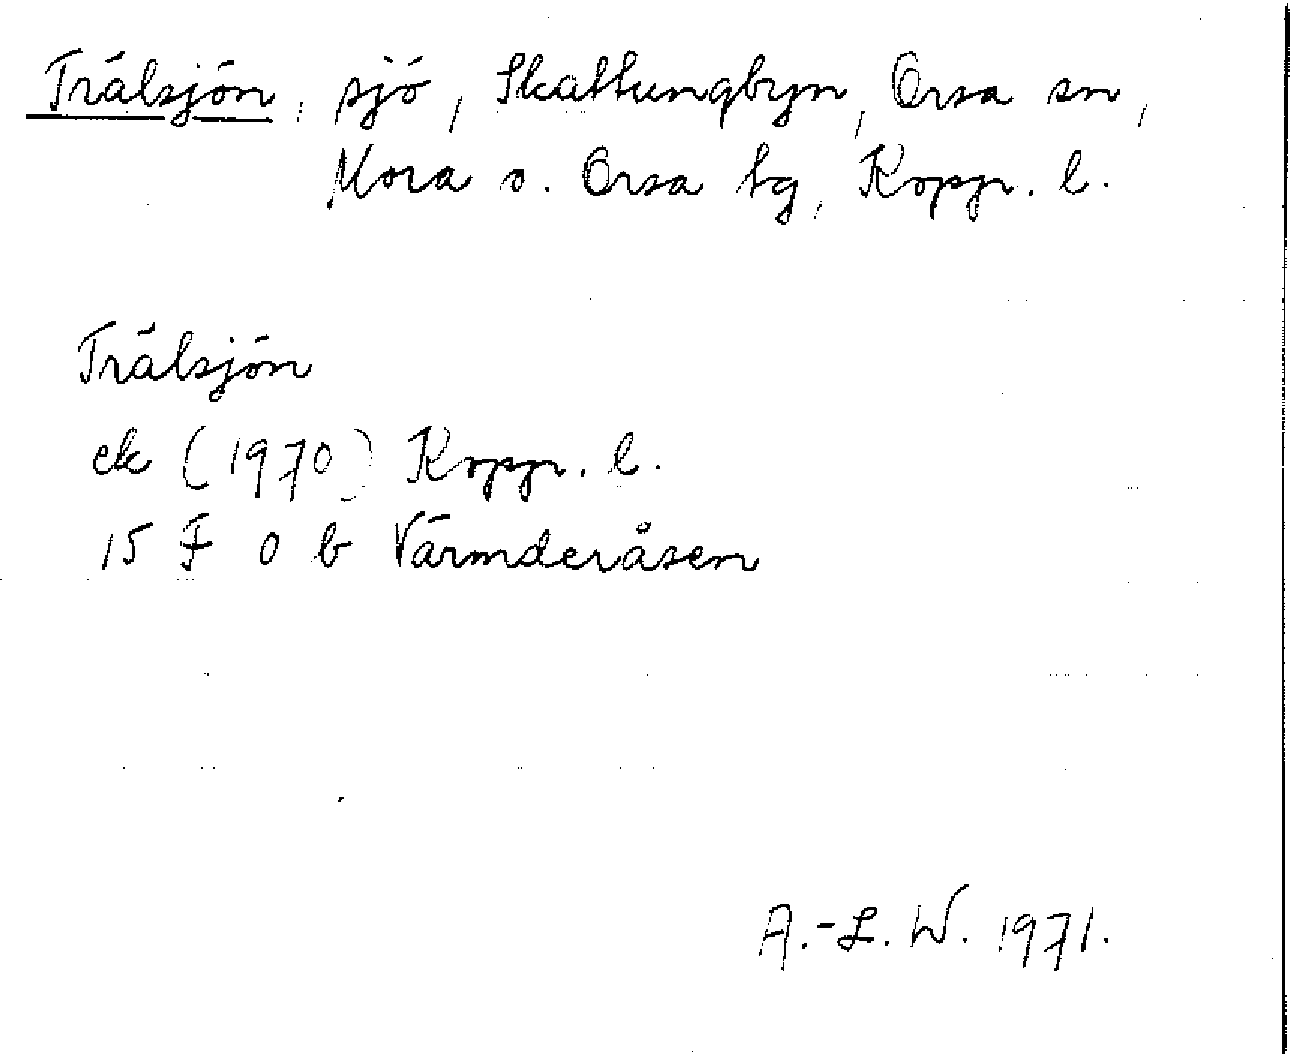 Trälsjön, sjö, Skattungbyn, Orsa sn,
Mora o. Orsa tg, Kopp. l.
Trälsjön
ek (1970) Kopp. l.
15 F 0 b Värmderåsen
A.-L. W. 1971.